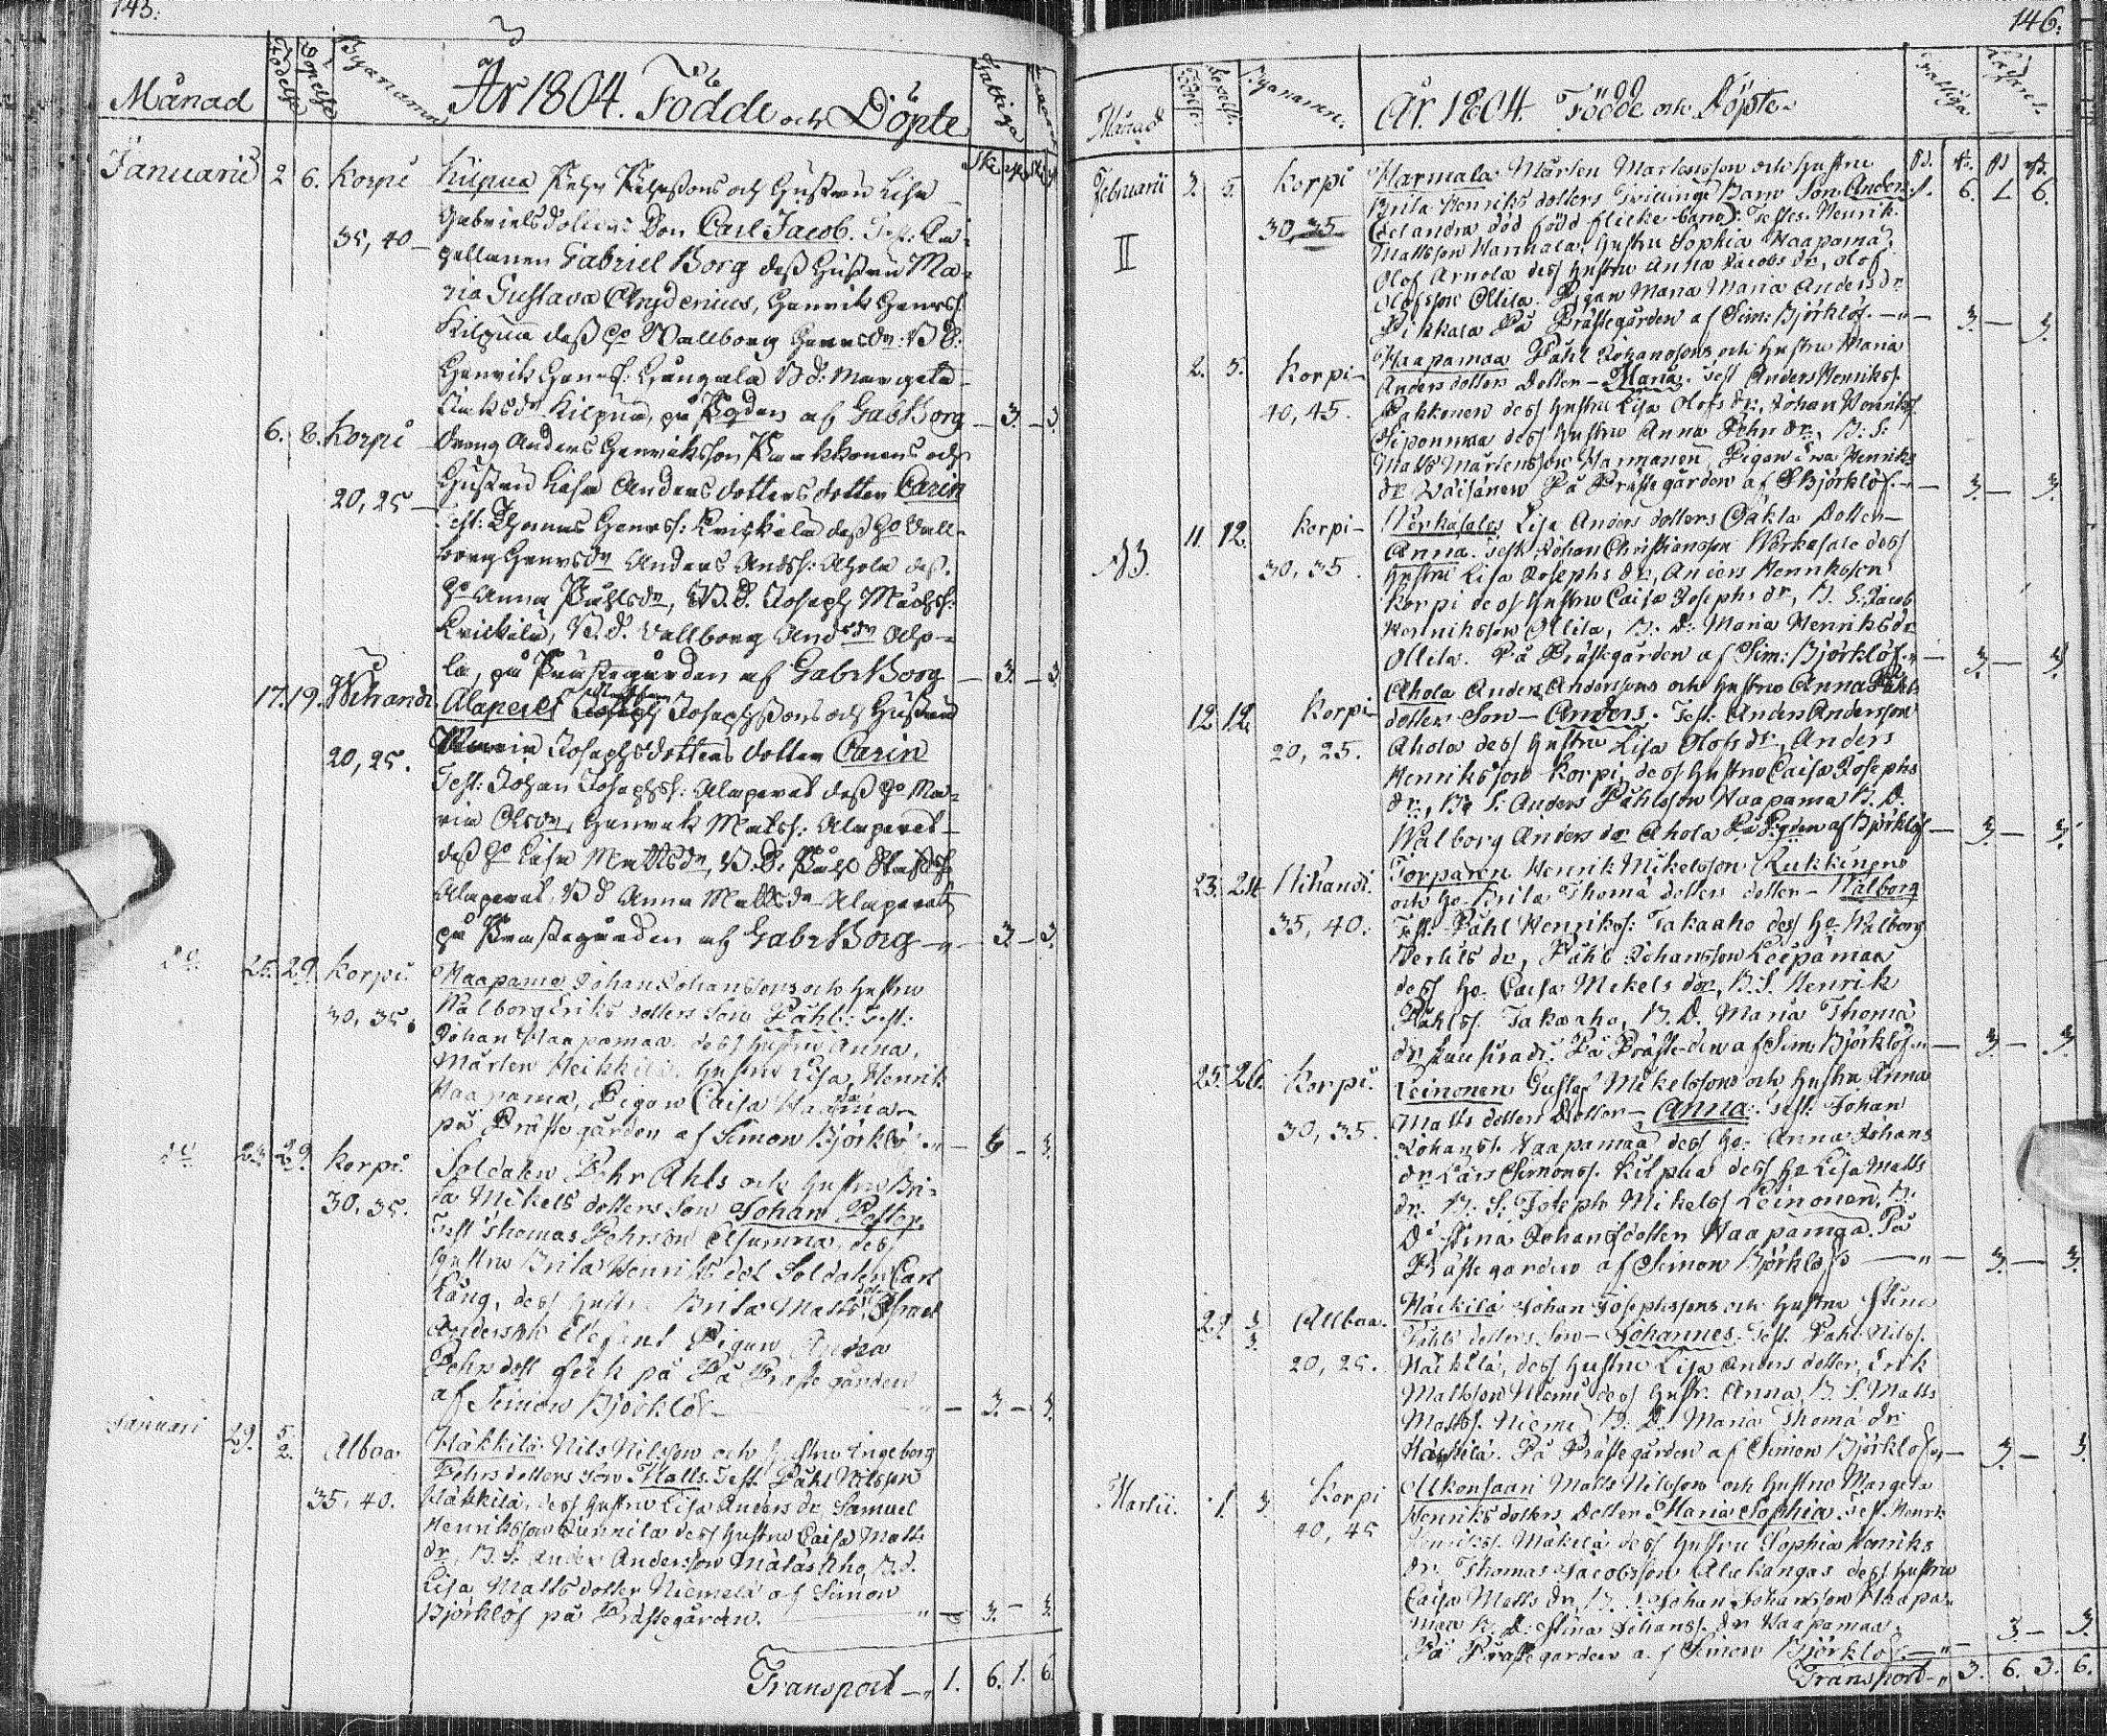 145:
Månad
Födelse
Döpelse
Byanamn
År 1804. Födde och Döpte
Fattiga
Sk
Januarii 2 6. Korpi Kilpua Pehr Pehrssons och Hustru Lisa
Gabrielsdotters Son Carl Jacob. Test: Ca-
35, 40 pellanen Gabriel Borg dess Hustru Ma-
ria Gustava Chydenius, Henrik Henrss:
Kilpua dess Ho Wallborg Henrsdr: B D:
Henrik Henrss: B d: Margeta
Kilpua, på Pgden af Gab Borg — 3. — 3.
6. 8. Korpi Dreng Anders Henriksson Pakkonens och
Hustru Lisa Anders dotters dotter Carin
20, 25 Test: Thomas Henrss: Krickila dess Ho Wall-
borg Henrsdr Anders Andss: Ahola dess
Ho Anna Påhlsdr, B. d. Joseph
Krickila, B. d. Wallborg Andrsdr Aho-
la, på Prästegården af Gabr Borg — 3. — 3.
17. 19. Wihandi Alaperet Josephssons och Hustru
Josephsdotters dotter Carin
20, 25. Test: Johan Josephss: Alaperet dess Ho Ma-
ria Olsdr, Henrik Matss: Alaperet
dess Ho Lisa Mattsdr, B. D. Påhl
Alaperet, B d Anna Mattsdr Alaperet
på Prästegården af Gabr Borg — 3. — 3.
do 25. 29. Korpi. Haapama Johan Johanssons och Hustru
Walborg Eriks dotters Son Påhl: Test:
30, 35. Johan Haapamaa dess hustru Anna,
Mårten Heikkilä hustru Lisa, Henrik
Haapama, Pigan Caisa Haapama
på Prästegården af Simon Björklöf
do 29. Korpi. Soldaten Pehr Ahls och Hustru Bri-
ta Mikels dotters Son Johan Petter.
30, 35. Test Thomas Pehrson dess
Hustru Brita Henriks dot Soldaten Carl
Lång, dess Hustru Brita Matts Israel
Andersson Elefant Pigan Andra
Pehrs dott på På Prästegården
af Simon Björklöf — 3. — 3.
Januari 29. 5/2. Alboa Häkkilä Nils Nilsson och Hustru Ingeborg
Pehrs dotters son Matts. Test. Påhl Nilsson
35, 40. Häkkilä, dess Hustru Lisa Anders dr Samuel
Henriksson Junnila dess Hustru Caisa Matts
dr, B. S: Anders Andersson Mätäs Aho, B. d.
Lisa Matts dotter Niemelä af Simon
Björklöf på Prästegården. — 3. — 3.
Transport — 1. 6. 1. 6.
146:
Månad
Födelse
Döpelse
Byanamn.
År. 1804. Födde och Döpte
Fattiga
Februarii 3. 5. Korpi Harmala Mårten Martensson och Hustru
Brita Henriks dotters Tvillinge Barn Son Anders 6. 6.
II 30, 35 det andra död född flicke barn. Testes: Henrik
Mattsson Harmala, Hustru Sophia Haapama,
Olof Arnola dess Hustru Anna Jacobs dr, Olof
Olofsson Ollila. Pigan Maria Maria Anders dr
Pikkala På Prästegården af Sim: Björklöf. — 3. — 3.
2. 5. Korpi Haapamaa Påhl Johanssons och Hustru Maria
Anders dotters Dotter — Maria. Test Anders Henrikss.
40, 45. Pakkonen dess Hustru Lisa Olofs dr, Johan Henrikss.
Siponmaa dess Hustru Anna Pehrs dr, B: S:
Matts Mårtensson Harmanen, Pigan Eva Henriks
dr Wäisänen På Prästegården af S Björklöf — 3. — 3.
NB. 11. 12. Korpi Werkasalos Lisa Anders dotters Oäkta Dotter
Anna. Test. Johan Christiansson Werkasalo dess
30, 35. Hustru Lisa Josephs dr, Anders Henriksson
Korpi dess Hustru Caisa Josephs dr, B. S: Jacob
Henriksson Ollila, B: D: Maria Henriks dr
Ollila. På Prästegården af Sim: Björklöf. — 3. — 3.
12. 12. Korpi Ahola Anders Anderssons och Hustru Anna Påhls
dotters Son — Anders. Test: Anders Andersson
20, 25. Ahola dess Hustru Lisa Olofs dr, Anders
Henriksson Korpi, dess Hustru Caisa Josephs
dr, B. S: Anders Påhlsson Haapama B. D.
Walborg Anders dr Ahola På Pgden af Björklöf — 3. — 3.
23. 24. Wihandi. Torparen Henrik Mikelsson Rukkinens
och Ho Brita Thoma dotters dotter — Walborg
35, 40. Test. Påhl Henrikss: Takaaho dess Ho Walborg
Bertils dr, Påhl Johansson Leepämaa
dess Ho Caisa Mikels dr, B. S. Henrik
Påhlss. Takaaho, B. D. Maria Thoma
dr På Präste-den af Sim Björklöf — 3. — 3.
25. 26. Korpi. Leinonen Gustaf Mikelssons och Hustru Anna
Matts dotters Dotter — Anna: Test. Johan
30, 35. Johanss. Haapamaa dess Ho Anna Johans
dr Lars Simonss. Kilpua dess Ho Lisa Matts
dr. B. S: Joseph Mikelss Leinonen B:
D: Stina Johans dotter Haapamaa. På
Prästegården af Simon Björklöf — 3. — 3.
29. 3/3. Alboa. Häckilä Johan Josephssons och Hustru Stina
Påhls dotters Son — Johannes. Test. Påhl Nilss.
20, 25. Häckilä, dess Hustru Lisa Anders dotter, Erik
Mattsson Niemi dess Hustr. Anna B. S. Matts
Mattss. Niemi, B. D. Maria Thoma dr
Häckilä. På Prästegården af Simon Björklöf. — 3. — 3.
Martii. 1. 3. Korpi Ukonsaari Matts Nilsson och Hustru Margeta
Henriks dotters Dotter Maria Sophia. Test. Henrik
40, 45 Henrikss. Mäkilä dess Hustru Sophia Henriks
dr. Thomas Jacobsson Alukangas dess Hustru
Caisa Matts dr, B. S. Johan Johansson Haapa-
maa B. D: Stina Johanss. dr Haapamaa.
På Prästegården af Simon Björklöf. — 3. — 3.
Transport — 3. 6. 3. 6.